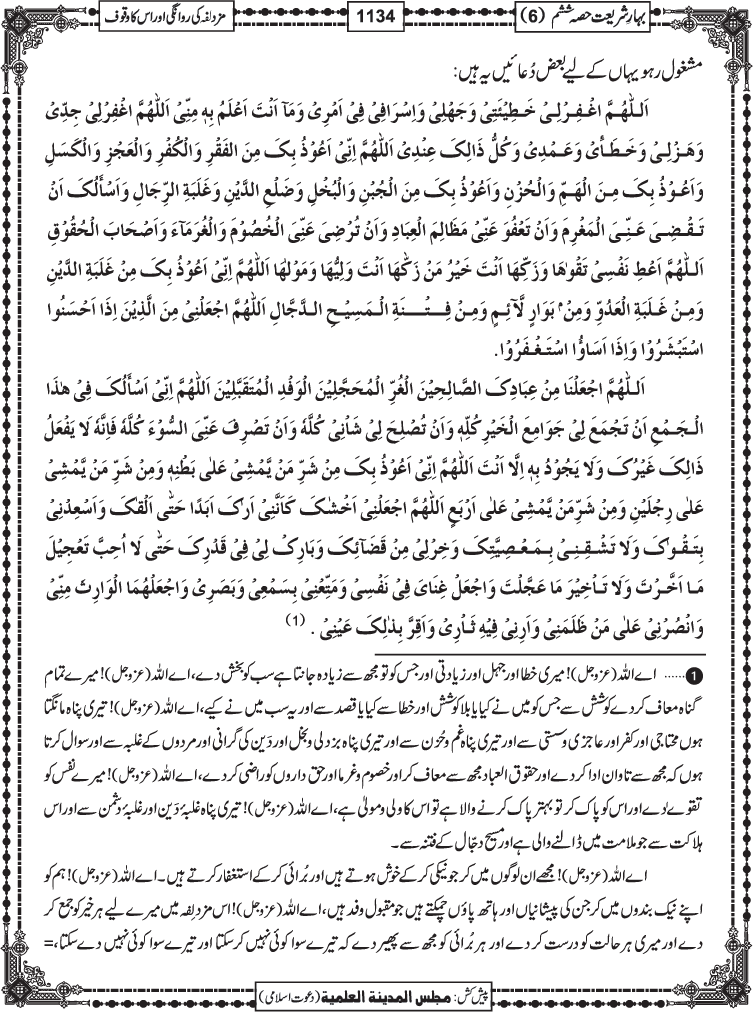 بہارِ شریعت حصہ ششم (6)
1134
مزدلفہ کی روانگی اور اس کا وقوف
مشغول رہو یہاں کے لیے بعض دُعائیں یہ ہیں:
اَللّٰهُمَّ اغْفِرْلِیْ خَطِیْئَتِیْ وَجَهْلِیْ وَاِسْرَافِیْ فِیْ اَمْرِیْ وَمَآ اَنْتَ اَعْلَمُ بِهٖ مِنِّیْ اَللّٰهُمَّ اغْفِرْلِیْ جِدِّیْ
وَهَزْلِیْ وَخَطَأیْ وَعَمْدِیْ وَكُلُّ ذَالِکَ عِنْدِیْ اَللّٰهُمَّ اِنِّیْ اَعُوْذُ بِکَ مِنَ الفَقْرِ وَالْكُفْرِ وَالْعَجْزِ وَالْكَسَلِ
وَاَعُوْذُ بِکَ مِنَ الْهَمِّ وَالْحُزْنِ وَاَعُوْذُ بِکَ مِنَ الْجُبْنِ وَالْبُخْلِ وَضَلْعِ الدَّيْنِ وَغَلَبَةِ الرِّجَالِ وَاَسْأَلُکَ اَنْ
تَقْضِیَ عَنِّی الْمَغْرِمَ وَاَنْ تَعْفُوَ عَنِّیْ مَظَالِمَ الْعِبَادِ وَاَنْ تُرْضِیَ عَنِّیَ الْخُصُوْمَ وَالْغُرَمَآءَ وَاَصْحَابَ الْحُقُوْقِ
اَللّٰهُمَّ اَعْطِ نَفْسِیْ تَقْوٰهَا وَزَكِّهَا اَنْتَ خَيْرُ مَنْ زَكّٰهَا اَنْتَ وَلِیُّهَا وَمَوْلٰهَا اَللّٰهُمَّ اِنِّیْ اَعُوْذُ بِکَ مِنْ غَلَبَةِ الدَّيْنِ
وَمِنْ غَلَبَةِ الْعَدُوِّ وَمِنْ ۢ بَوَارِ لَآئِمٍ وَمِنْ فِتْنَةِ الْمَسِيْحِ الدَّجَّالِ اَللّٰهُمَّ اجْعَلْنِیْ مِنَ الَّذِيْنَ اِذَا اَحْسَنُوا
اسْتَبْشَرُوْا وَاِذَا اَسَاؤُا اسْتَغْفَرُوْا.
اَللّٰهُمَّ اجْعَلْنَا مِنْ عِبَادِکَ الصَّالِحِيْنَ الْغُرِّ الْمُحَجَّلِيْنَ الْوَفْدِ الْمُتَقَبَّلِيْنَ اَللّٰهُمَّ اِنِّیْ اَسْأَلُکَ فِیْ هٰذَا
الْجَمْعِ اَنْ تَجْمَعَ لِیْ جَوَامِعَ الْخَيْرِ كُلِّهٖ وَاَنْ تُصْلِحَ لِیْ شَأْنِیْ كُلَّهٗ وَاَنْ تَصْرِفَ عَنِّی السُّوْءَ كُلَّهٗ فَاِنَّهٗ لَا يَفْعَلُ
ذَالِکَ غَيْرُکَ وَلَا يَجُوْدُ بِهٖ اِلَّا اَنْتَ اَللّٰهُمَّ اِنِّیْ اَعُوْذُ بِکَ مِنْ شَرِّ مَنْ يَّمْشِیْ عَلٰی بَطْنِهٖ وَمِنْ شَرِّ مَنْ يَّمْشِیْ
عَلٰی رِجْلَيْنِ وَمِنْ شَرِّ مَنْ يَّمْشِیْ عَلٰی اَرْبَعٍ اَللّٰهُمَّ اجْعَلْنِیْ اَخْشٰکَ كَاَنَّنِیْ اَرٰکَ اَبَدًا حَتّٰی اَلْقٰکَ وَاَسْعِدْنِیْ
بِتَقْوٰکَ وَلَا تَشْقِنِیْ بِمَعْصِيَّتِکَ وَخِرْلِیْ مِنْ قَضَآئِکَ وَبَارِکْ لِیْ فِیْ قَدْرِکَ حَتّٰی لَا اُحِبَّ تَعْجِيْلَ
مَا اَخَّرْتَ وَلَا تَاْخِيْرَ مَا عَجَّلْتَ وَاجْعَلْ غِنَایَ فِیْ نَفْسِیْ وَمَتِّعْنِیْ بِسَمْعِیْ وَبَصَرِیْ وَاجْعَلْهُمَا الْوَارِثَ مِنِّیْ
وَانْصُرْنِیْ عَلٰی مَنْ ظَلَمَنِیْ وَاَرِنِیْ فِيْهِ ثَارِیْ وَاَقِرَّ بِذٰلِکَ عَيْنِیْ . (1)
1 ...... اے اللہ (عزوجل)! میری خطا اور جہل اور زیادتی اور جس کو تو مجھ سے زیادہ جانتا ہے سب کو بخش دے، اے اللہ (عزوجل)! میرے تمام
گناہ معاف کردے کوشش سے جس کو میں نے کیا یا بلا کوشش اور خطا سے کیا یا قصد سے اور یہ سب میں نے کیے، اے اللہ (عزوجل)! تیری پناہ مانگتا
ہوں محتاجی اور کفر اور عاجزی و سستی سے اور تیری پناہ غم و حُزن سے اور تیری پناہ بزدلی و بخل اور دَین کی گرانی اور مردوں کے غلبہ سے اور سوال کرتا
ہوں کہ مجھ سے تاوان ادا کردے اور حقوق العباد مجھ سے معاف کر اور خصوم و غرما اور حق داروں کو راضی کردے، اے اللہ (عزوجل)! میرے نفس کو
تقوے دے اور اس کو پاک کر تو بہتر پاک کرنے والا ہے تو اس کا ولی و مولیٰ ہے، اے اللہ (عزوجل)! تیری پناہ غلبۂ دَین اور غلبۂ دشمن سے اور اس
ہلاکت سے جو ملامت میں ڈالنے والی ہے اور مسیح دجّال کے فتنہ سے۔
اے اللہ (عزوجل)! مجھے ان لوگوں میں کر جو نیکی کرکے خوش ہوتے ہیں اور بُرائی کرکے استغفار کرتے ہیں۔ اے اللہ (عزوجل)! ہم کو
اپنے نیک بندوں میں کر جن کی پیشانیاں اور ہاتھ پاؤں چمکتے ہیں جو مقبول وفد ہیں، اے اللہ (عزوجل)! اس مزدلفہ میں میرے لیے ہر خیر کو جمع کر
دے اور میری ہر حالت کو درست کردے اور ہر بُرائی کو مجھ سے پھیر دے کہ تیرے سوا کوئی نہیں کرسکتا اور تیرے سوا کوئی نہیں دے سکتا، =
پیش کش: مجلس المدینة العلمیة (دعوتِ اسلامی)